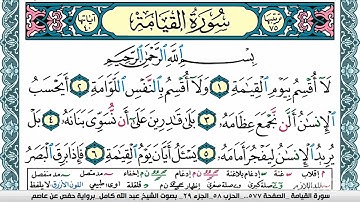 ترتيبها ٧٥
سُورَةُ القِيَامَةِ
آياتها ٤٠
بِسْمِ ٱللَّهِ ٱلرَّحْمَٰنِ ٱلرَّحِيمِ
لَآ أُقْسِمُ بِيَوْمِ ٱلْقِيَٰمَةِ ١ وَلَآ أُقْسِمُ بِٱلنَّفْسِ ٱللَّوَّامَةِ ٢ أَيَحْسَبُ
ٱلْإِنسَٰنُ أَلَّن نَّجْمَعَ عِظَامَهُۥ ٣ بَلَىٰ قَٰدِرِينَ عَلَىٰٓ أَن نُّسَوِّىَ بَنَانَهُۥ ٤ بَلْ
يُرِيدُ ٱلْإِنسَٰنُ لِيَفْجُرَ أَمَامَهُۥ ٥ يَسْـَٔلُ أَيَّانَ يَوْمُ ٱلْقِيَٰمَةِ ٦ فَإِذَا بَرِقَ ٱلْبَصَرُ
سورة القيامة . الصفحة ٥٧٧ . الحزب ٥٨ . الجزء ٢٩ . بصوت الشيخ عبد الله كامل . برواية حفص عن عاصم